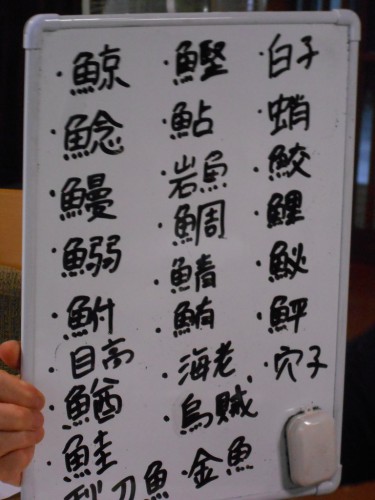 ・鯨
・鯰
・鰻
・鰯
・鮒
・目高
・鰌
・鮭
秋刀魚
・鰹
・鮎
・岩魚
・鯛
・鯖
・鮪
・海老
・烏賊
・金魚
・白子
・蛸
・鮫
・鯉
・鮅
・鮃
・穴子